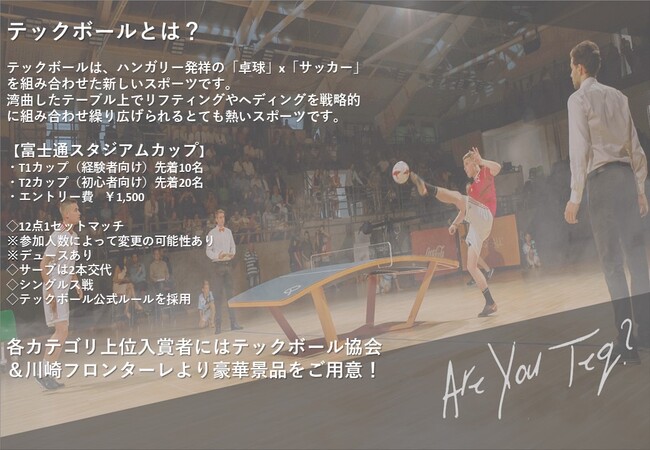 テックボールとは？
テックボールは、ハンガリー発祥の「卓球」x「サッカー」
を組み合わせた新しいスポーツです。
湾曲したテーブル上でリフティングやヘディングを戦略的
に組み合わせ繰り広げられるとても熱いスポーツです。
【富士通スタジアムカップ】
・T1カップ（経験者向け）先着10名
・T2カップ（初心者向け）先着20名
・エントリー費　￥1,500
◇12点1セットマッチ
※参加人数によって変更の可能性あり
※デュースあり
◇サーブは2本交代
◇シングルス戦
◇テックボール公式ルールを採用
各カテゴリ上位入賞者にはテックボール協会
＆川崎フロンターレより豪華景品をご用意！
Are You Teq?